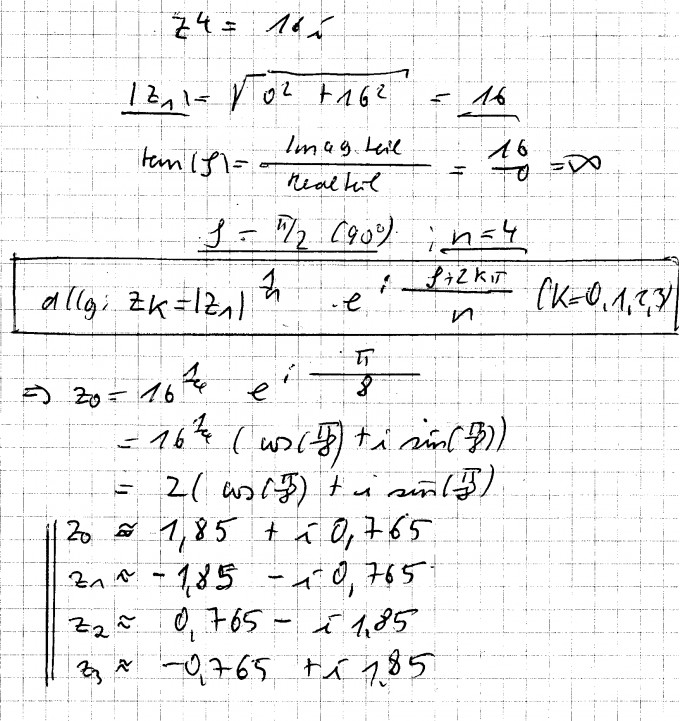 z⁴ = 16i
|z₁| = √(0² + 16²) = 16
tan(φ) = Imag.teil / Realteil = 16/0 = ∞
φ = π/2 (90°) ; n = 4
allg: z_K = |z₁|^(1/n) · e^(i (φ+2kπ)/n) (K=0,1,2,3)
⇒ z₀ = 16^(1/4) e^(i π/8)
= 16^(1/4) (cos(π/8) + i sin(π/8))
= 2( cos(π/8) + i sin(π/8)
z₀ ≈ 1,85 + i 0,765
z₁ ≈ -1,85 - i 0,765
z₂ ≈ 0,765 - i 1,85
z₃ ≈ -0,765 + i 1,85